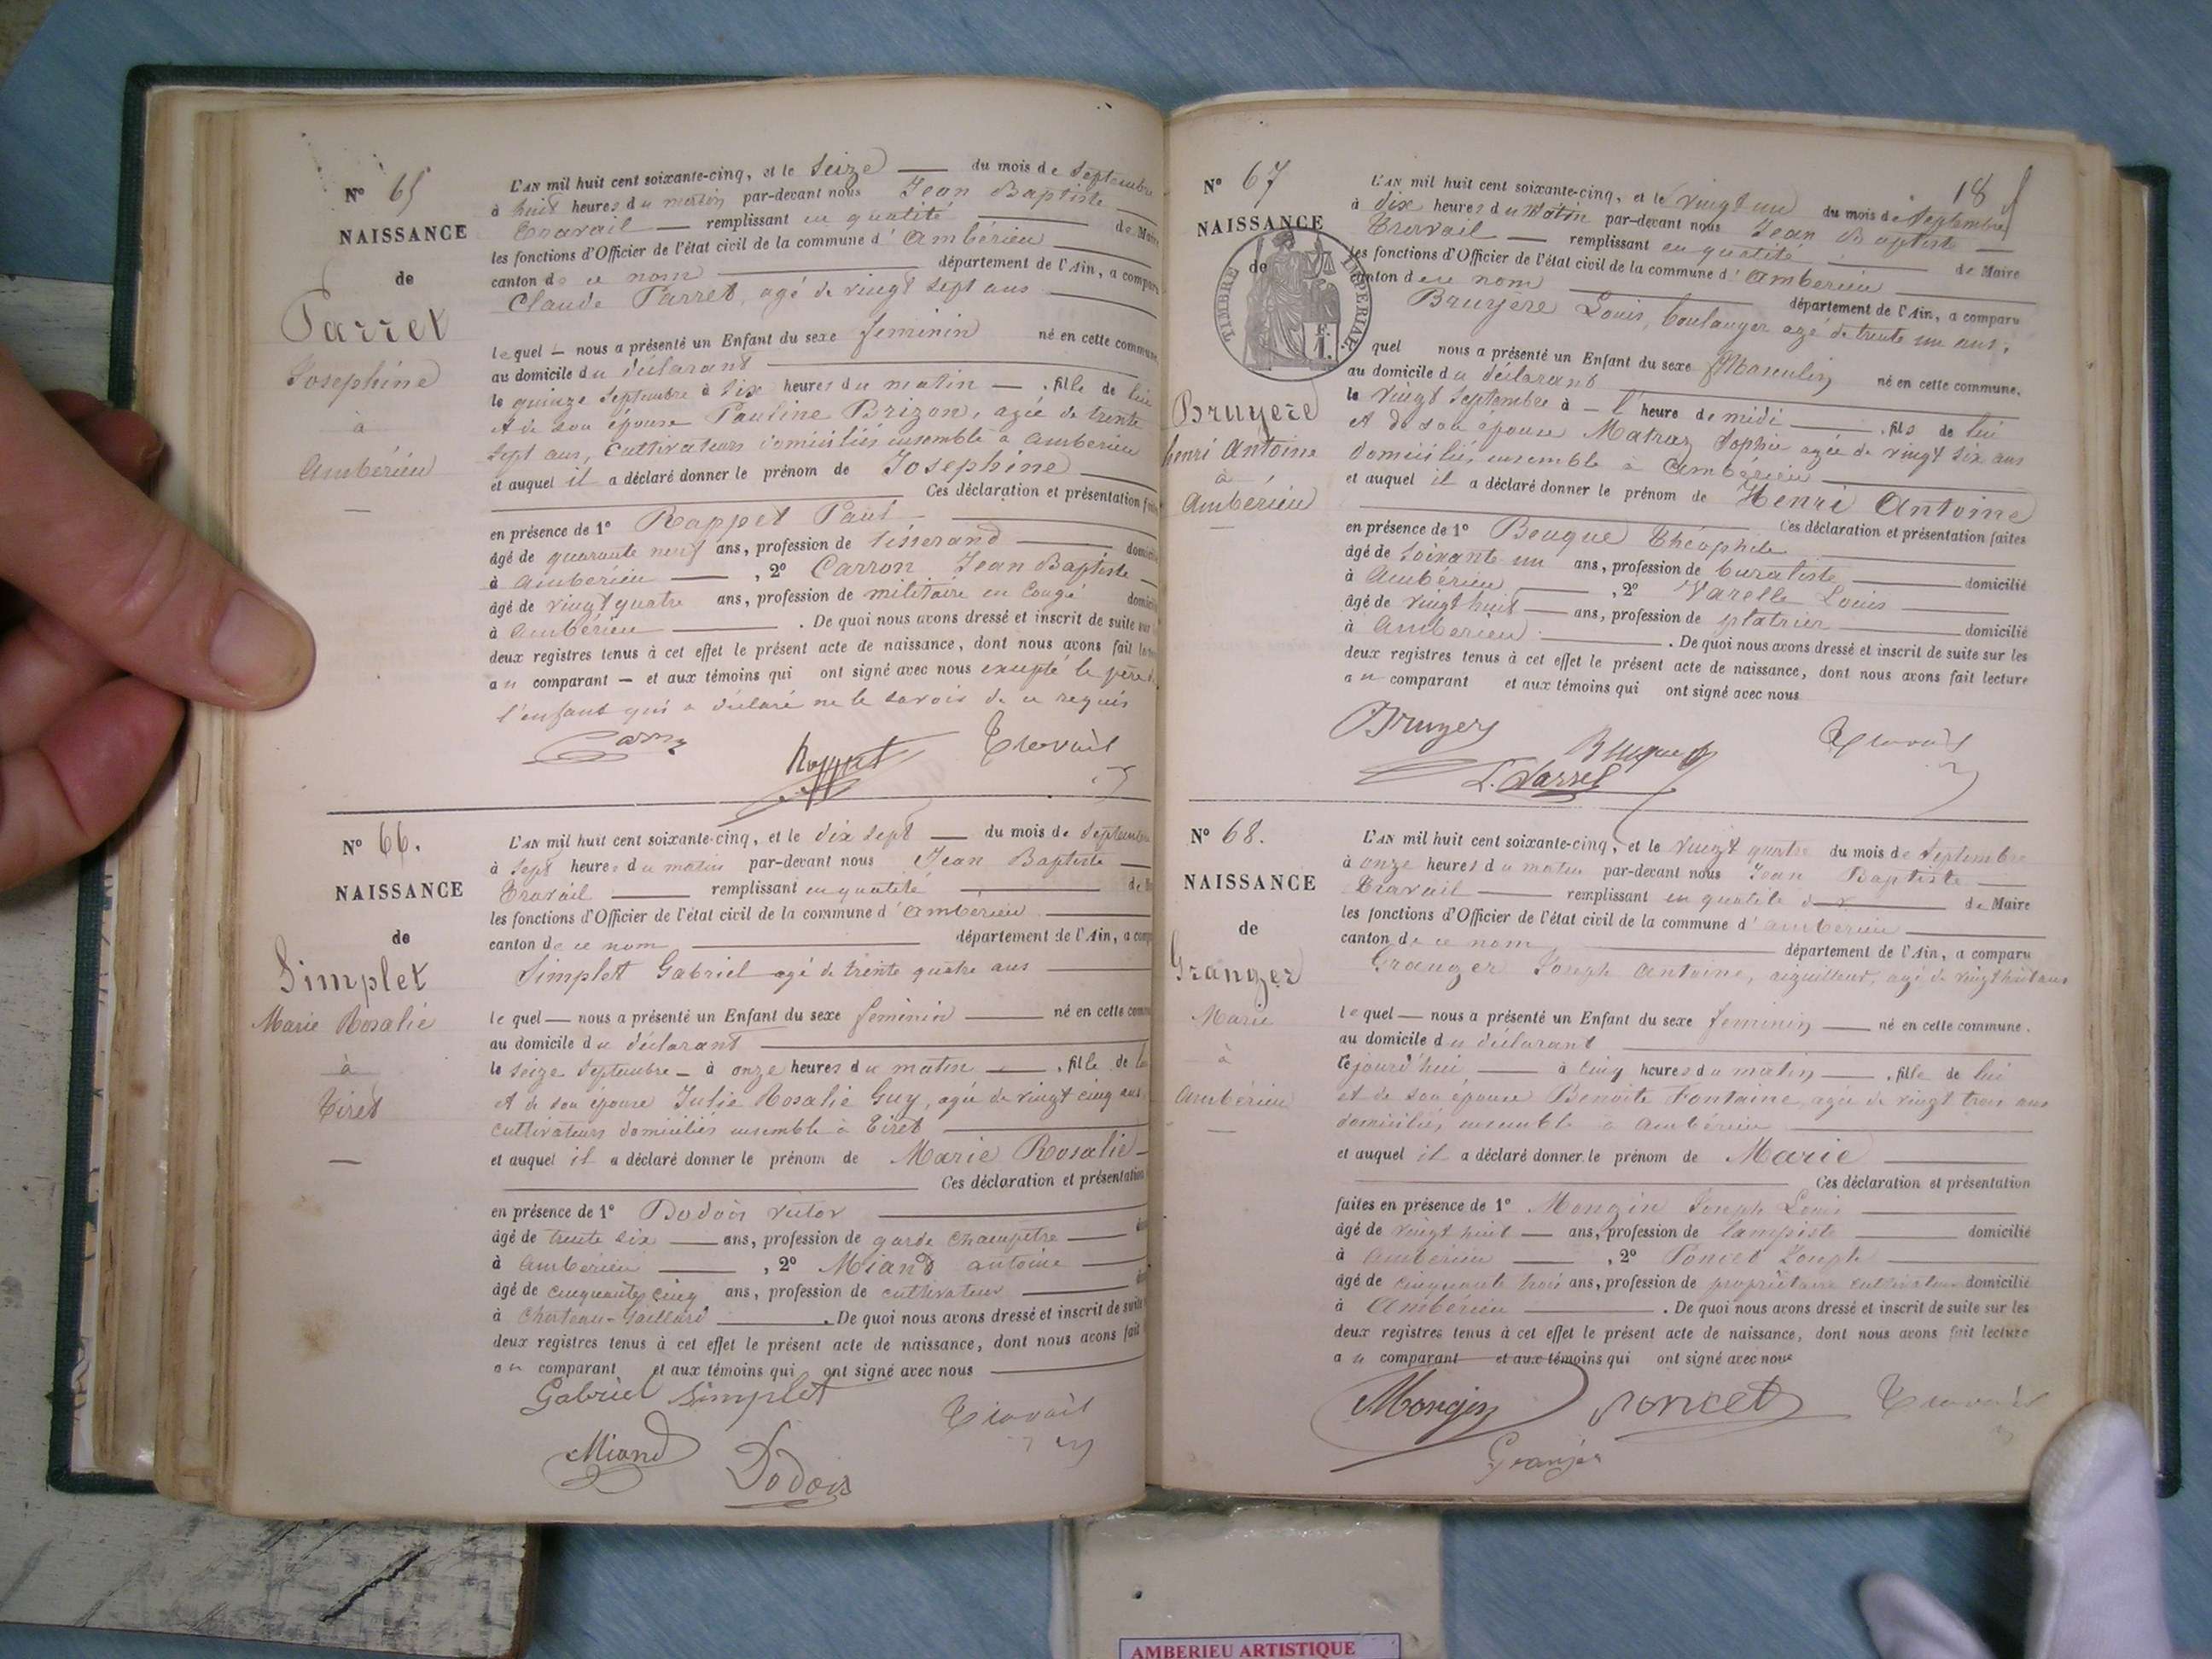 N° 65
NAISSANCE
de
Parret
Josephine
à
Ambérieu
L'AN mil huit cent soixante-cinq, et le Seize du mois de Septembre
à huit heures du matin par-devant nous Jean Baptiste
Travail remplissant en qualité de Maire
les fonctions d'Officier de l'état civil de la commune d'Ambérieu
canton de ce nom département de l'Ain, a comparu
Claude Parret, agé de vingt sept ans
lequel nous a présenté un Enfant du sexe feminin né en cette commune
au domicile du déclarant
le quinze Septembre à six heures du matin , fille de lui
et de son épouse Pauline Brizon, agée de trente
sept ans, cultivateurs domiciliés ensemble à Ambérieu
et auquel il a déclaré donner le prénom de Josephine
Ces déclaration et présentation faites
en présence de 1° Rappet Paul
âgé de quarante neuf ans, profession de tisserand
à Ambérieu , 2° Carron Jean Baptiste
âgé de vingt quatre ans, profession de militaire en congé
à Ambérieu . De quoi nous avons dressé et inscrit de suite sur
deux registres tenus à cet effet le présent acte de naissance, dont nous avons fait
au comparant — et aux témoins qui ont signé avec nous excepté le père de
l'enfant qui a déclaré ne le savoir de ce requis
Rappet Travail
N° 66.
NAISSANCE
de
Simplet
Marie Rosalie
à
Tiret
L'AN mil huit cent soixante-cinq, et le dix sept du mois de Septembre
à sept heures du matin par-devant nous Jean Baptiste
Travail remplissant en qualité
les fonctions d'Officier de l'état civil de la commune d'Ambérieu
canton de ce nom département de l'Ain, a comp
Simplet Gabriel agé de trente quatre ans
lequel nous a présenté un Enfant du sexe feminin né en cette comm
au domicile du déclarant
le seize Septembre à onze heures du matin , fille de lui
et de son épouse Julie Rosalie Guy, agée de vingt cinq ans
cultivateurs domiciliés ensemble à Tiret
et auquel il a déclaré donner le prénom de Marie Rosalie
Ces déclaration et présentation
en présence de 1° Dodois Victor
âgé de trente six ans, profession de garde champêtre
à Ambérieu , 2° Miand antoine
âgé de cinquante cinq ans, profession de cultivateur
à Chateau-Gaillard . De quoi nous avons dressé et inscrit de suite
deux registres tenus à cet effet le présent acte de naissance, dont nous avons fait
au comparant et aux témoins qui ont signé avec nous
Gabriel Simplet Travail
Miand Dodois
18
N° 67
NAISSANCE
de
TIMBRE IMPERIAL
Bruyere
henri Antoine
à
Ambérieu
L'AN mil huit cent soixante-cinq, et le Vingt un du mois de Septembre
à dix heures du Matin par-devant nous Jean Baptiste
Travail remplissant en qualité de Maire
les fonctions d'Officier de l'état civil de la commune d'Amberieu
canton de ce nom département de l'Ain, a comparu
Bruyère Louis, boulanger agé de trente un ans,
quel nous a présenté un Enfant du sexe Masculin né en cette commune.
au domicile du déclarant
le vingt Septembre à l'heure de midi , fils de lui
et de son épouse Matraz Sophie agée de vingt six ans
domiciliés ensemble à Ambérieu
et auquel il a déclaré donner le prénom de Henri Antoine
Ces déclaration et présentation faites
en présence de 1° Bouque Théophile
âgé de soixante un ans, profession de buraliste domicilié
à Ambérieu , 2° Varelle Louis
âgé de vingt huit ans, profession de platrier domicilié
à Amberieu . De quoi nous avons dressé et inscrit de suite sur les
deux registres tenus à cet effet le présent acte de naissance, dont nous avons fait lecture
au comparant et aux témoins qui ont signé avec nous
Bruyere Travail
N° 68.
NAISSANCE
de
Granger
Marie
à
Ambérieu
L'AN mil huit cent soixante-cinq, et le Vingt quatre du mois de Septembre
à onze heures du matin par-devant nous Jean Baptiste
Travail remplissant en qualité de Maire
les fonctions d'Officier de l'état civil de la commune d'amberieu
canton de ce nom département de l'Ain, a comparu
Granger Joseph Antoine, aiguilleur, agé de vingt huit ans
lequel nous a présenté un Enfant du sexe feminin né en cette commune.
au domicile du déclarant
cejourd'hui à cinq heures du matin , fille de lui
et de son épouse Benoite Fontaine, agée de vingt trois ans
domiciliés ensemble à Ambérieu
et auquel il a déclaré donner le prénom de Marie
Ces déclaration et présentation
faites en présence de 1° Mongin Joseph Louis
âgé de vingt huit ans, profession de lampiste domicilié
à Ambérieu , 2° Poncet Joseph
âgé de cinquante trois ans, profession de propriétaire cultivateur domicilié
à Ambérieu . De quoi nous avons dressé et inscrit de suite sur les
deux registres tenus à cet effet le présent acte de naissance, dont nous avons fait lecture
au comparant et aux témoins qui ont signé avec nous
Mongin Poncet Travail
Granger
AMBERIEU ARTISTIQUE